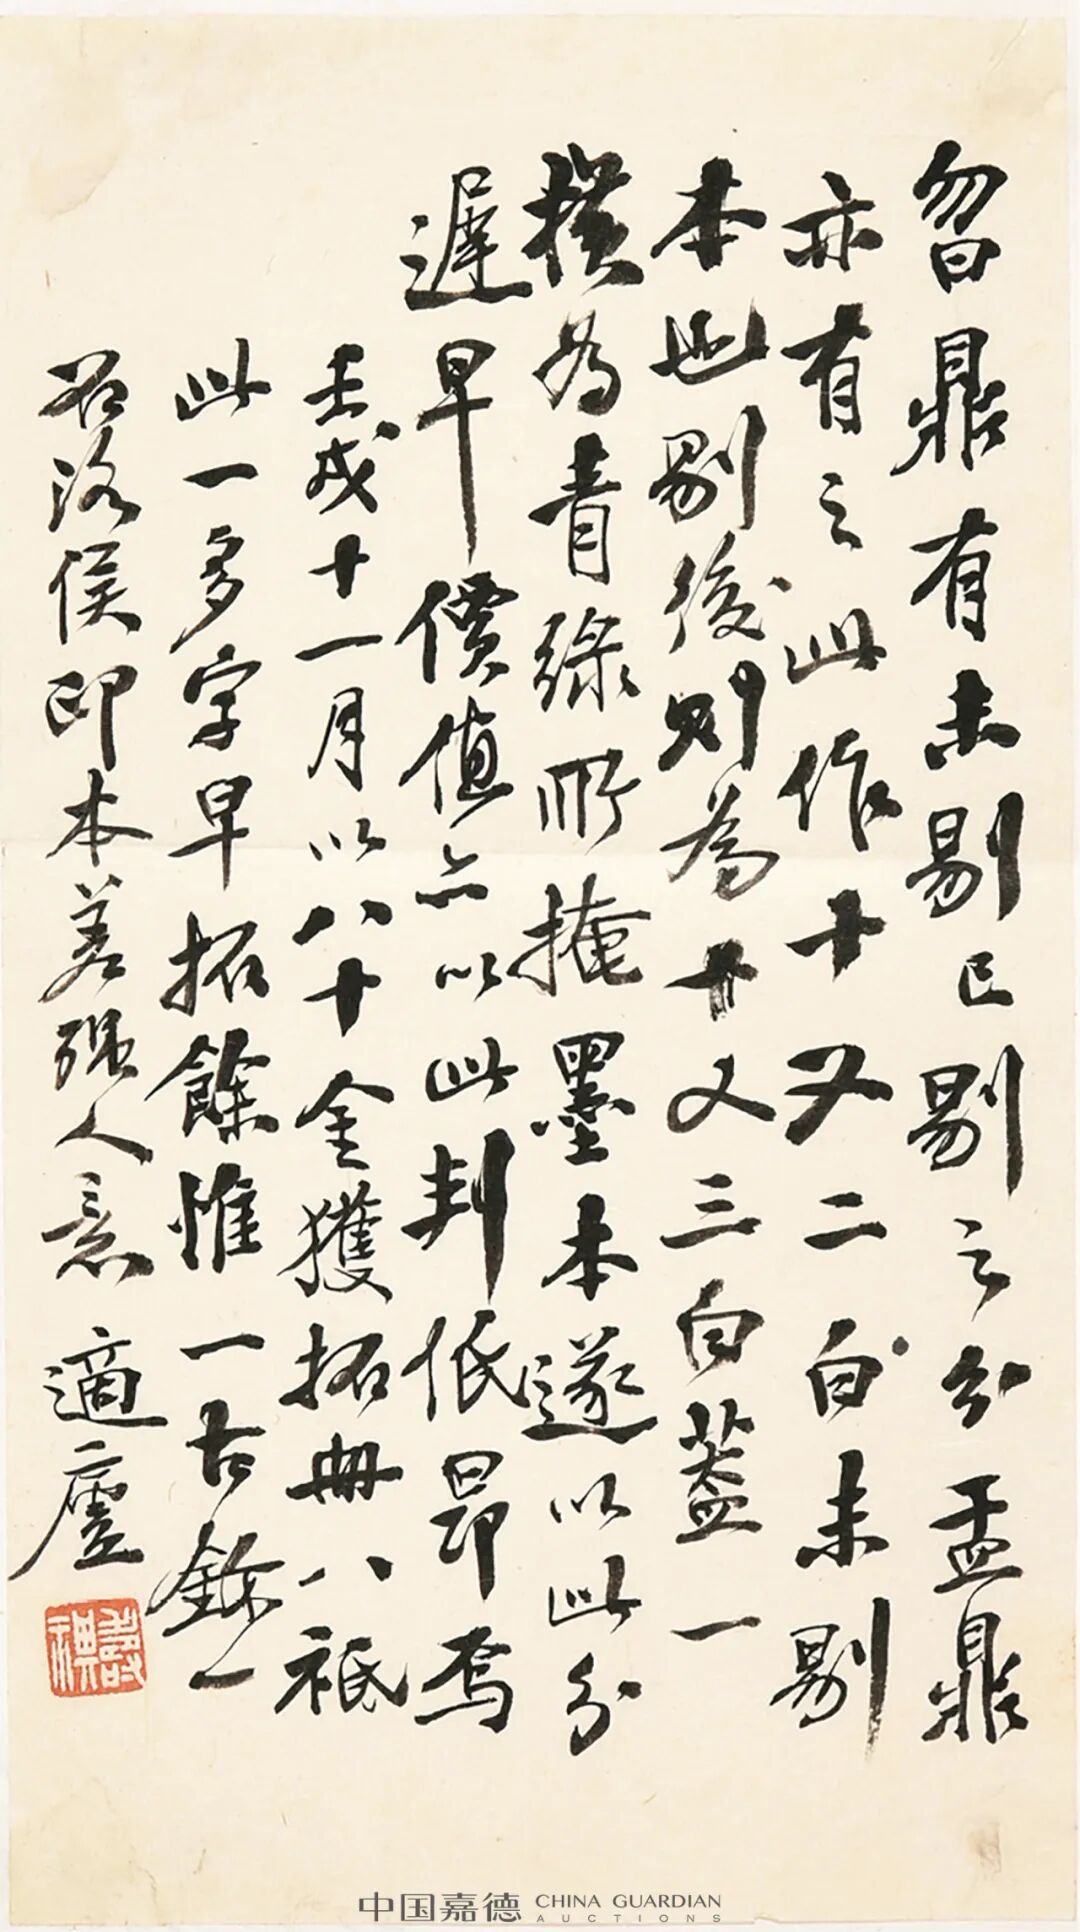 曶鼎有未剔已剔之分盂鼎
亦有之此作十又二白未剔
本也剔後則為廿又三白蓋一
橫為青綠所掩墨本遂以此分
遲早價值亦以此判低昂焉
壬戌十一月以八十金獲拓冊八祇
此一多字早拓餘惟一古鉨一
石洛侯印本差強人意 適廬
中国嘉德 CHINA GUARDIAN
AUCTIONS